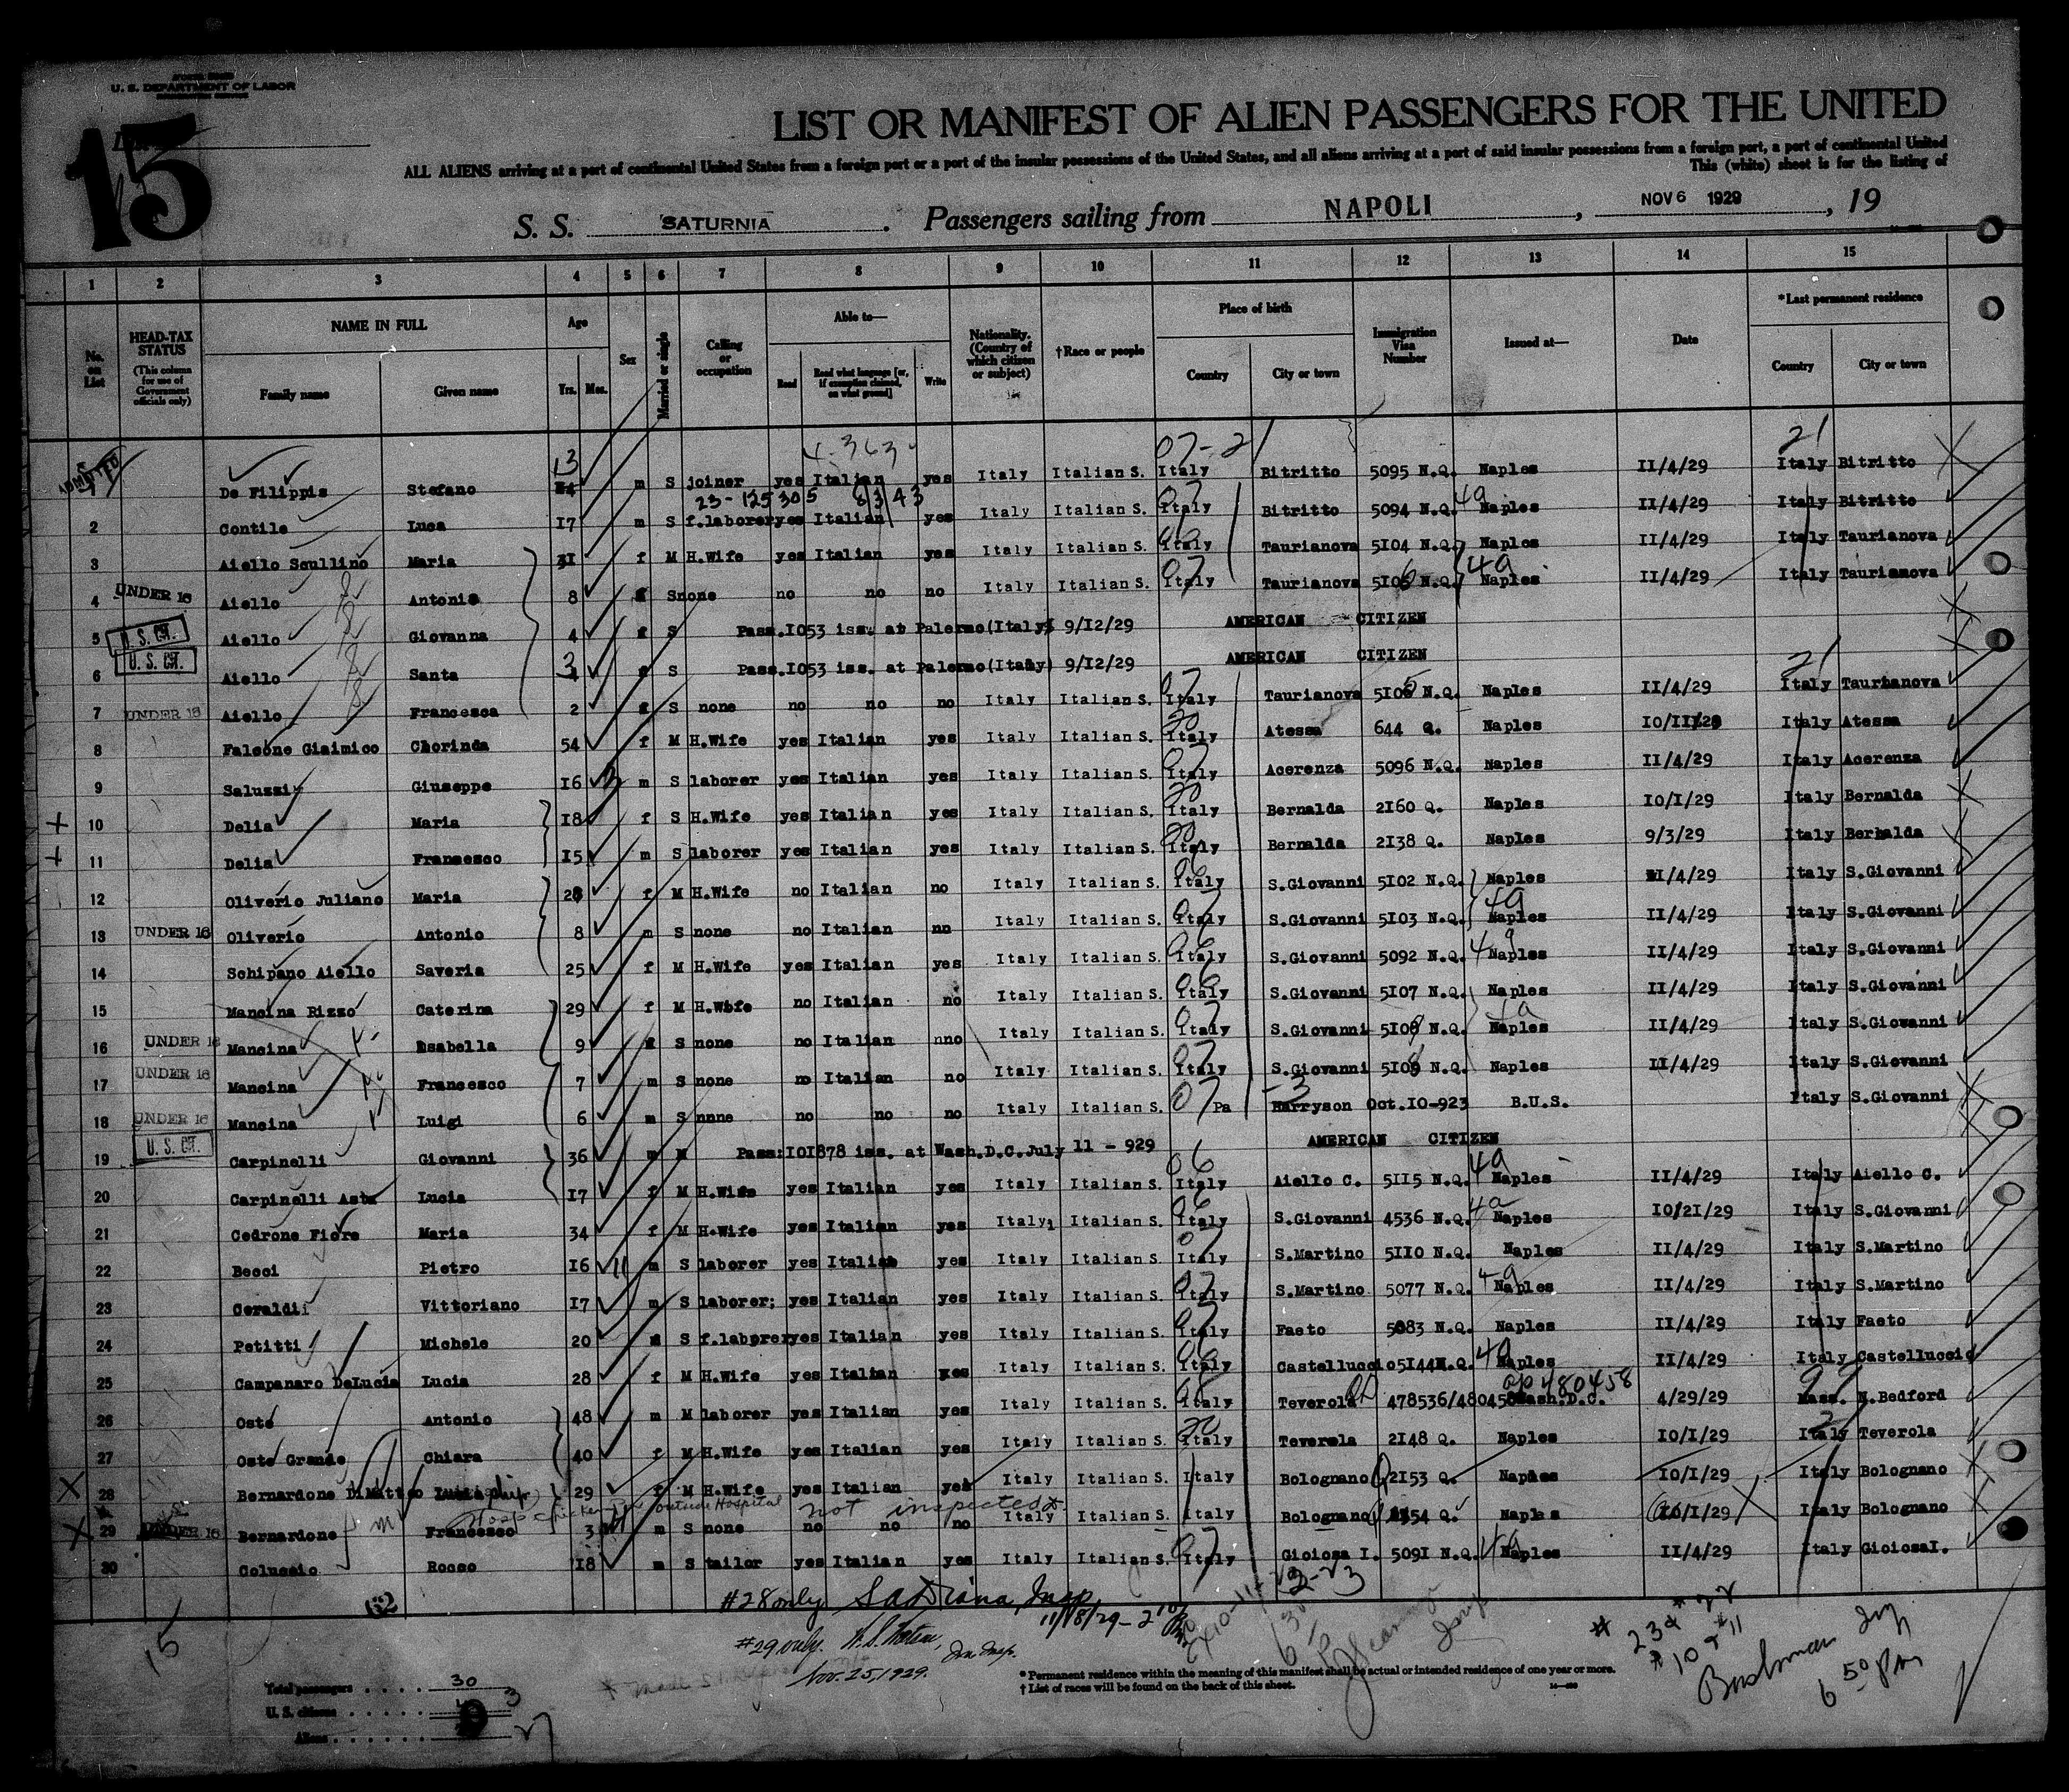 U. S. DEPARTMENT OF LABOR
15
LIST OR MANIFEST OF ALIEN PASSENGERS FOR THE UNITED
ALL ALIENS arriving at a port of continental United States from a foreign port or a port of the insular possessions of the United States, and all aliens arriving at a port of said insular possessions from a foreign port, a port of continental United
This (white) sheet is for the listing of
S. S. SATURNIA . Passengers sailing from NAPOLI , NOV 6 1929 , 19
1 2 3 4 5 6 7 8 9 10 11 12 13 14 15
No. on List HEAD-TAX STATUS (This column for use of Government officials only) NAME IN FULL Family name Given name Age Yrs. Mos. Sex Married or single Calling or occupation Able to— Read Read what language [or, if exemption claimed, on what ground] Write Nationality. (Country of which citizen or subject) †Race or people Place of birth Country City or town Immigration Visa Number Issued at— Date *Last permanent residence Country City or town
4-363 07-21 21
ADMITTED 1 De Filippis Stefano 13 m S joiner yes Italian yes Italy Italian S. Italy Bitritto 5095 N.Q. Naples 11/4/29 Italy Bitritto
2 Contile Luca 17 m S f.laborer yes Italian yes Italy Italian S. Italy Bitritto 5094 N.Q. Naples 11/4/29 Italy Bitritto
3 Aiello Scullino Maria 31 f M H.Wife yes Italian yes Italy Italian S. Italy Taurianova 5104 N.Q. Naples 11/4/29 Italy Taurianova
4 UNDER 16 Aiello Antonia 8 f S none no no no Italy Italian S. Italy Taurianova 5106 N.Q. Naples 11/4/29 Italy Taurianova
5 U. S. CIT. Aiello Giovanna 4 f S Pass.1053 iss. at Palermo(Italy) 9/12/29 AMERICAN CITIZEN
6 U. S. CIT. Aiello Santa 3 f S Pass.1053 iss. at Palermo(Italy) 9/12/29 AMERICAN CITIZEN
7 UNDER 16 Aiello Francesca 2 f S none no no no Italy Italian S. Italy Taurianova 5105 N.Q. Naples 11/4/29 Italy Taurianova
8 Falcone Giaimico Chorinda 54 f M H.Wife yes Italian yes Italy Italian S. Italy Atessa 644 Q. Naples 10/11/29 Italy Atessa
9 Saluzzi Giuseppe 16 3 m S laborer yes Italian yes Italy Italian S. Italy Acerenza 5096 N.Q. Naples 11/4/29 Italy Acerenza
10 Delia Maria 18 f S H.Wife yes Italian yes Italy Italian S. Italy Bernalda 2160 Q. Naples 10/1/29 Italy Bernalda
11 Delia Francesco 15 m S laborer yes Italian yes Italy Italian S. Italy Bernalda 2138 Q. Naples 9/3/29 Italy Bernalda
12 Oliverio Juliano Maria 28 f M H.Wife no Italian no Italy Italian S. Italy S.Giovanni 5102 N.Q. Naples 11/4/29 Italy S.Giovanni
13 UNDER 16 Oliverio Antonio 8 m S none no Italian no Italy Italian S. Italy S.Giovanni 5103 N.Q. Naples 11/4/29 Italy S.Giovanni
14 Schipano Aiello Saveria 25 f M H.Wife yes Italian yes Italy Italian S. Italy S.Giovanni 5092 N.Q. Naples 11/4/29 Italy S.Giovanni
15 Mancina Rizzo Caterina 29 f M H.Wife no Italian no Italy Italian S. Italy S.Giovanni 5107 N.Q. Naples 11/4/29 Italy S.Giovanni
16 UNDER 16 Mancina Isabella 9 f S none no Italian nno Italy Italian S. Italy S.Giovanni 5109 N.Q. Naples 11/4/29 Italy S.Giovanni
17 UNDER 16 Mancina Francesco 7 m S none no Italian no Italy Italian S. Italy S.Giovanni 5108 N.Q. Naples 11/4/29 Italy S.Giovanni
18 UNDER 16 Mancina Luigi 6 m S nnne no no no Italy Italian S. Pa Harryson Oct.10-923 B.U.S. Italy S.Giovanni
19 U. S. CIT. Carpinelli Giovanni 36 m M Pass:101878 iss. at Wash.D.C.July 11 - 929 AMERICAN CITIZEN
20 Carpinelli Asta Lucia 17 f M H.Wife yes Italian yes Italy Italian S. Italy Aiello C. 5115 N.Q. Naples 11/4/29 Italy Aiello C.
21 Cedrone Fiore Maria 34 f M H.Wife yes Italian yes Italy Italian S. Italy S.Giovanni 4536 N.Q. Naples 10/21/29 Italy S.Giovanni
22 Becci Pietro 16 11 m S laborer yes Italian yes Italy Italian S. Italy S.Martino 5110 N.Q. Naples 11/4/29 Italy S.Martino
23 Ceraldi Vittoriano 17 m S laborer; yes Italian yes Italy Italian S. Italy S.Martino 5077 N.Q. Naples 11/4/29 Italy S.Martino
24 Petitti Michele 20 m S f.laborer yes Italian yes Italy Italian S. Italy Faeto 5083 N.Q. Naples 11/4/29 Italy Faeto
25 Campanaro DeLucia Lucia 28 f M H.Wife yes Italian yes Italy Italian S. Italy Castelluccio 5144 N.Q. Naples 11/4/29 Italy Castelluccio
26 Oste Antonio 48 m M laborer yes Italian yes Italy Italian S. Italy Teverola 478536/480458 Wash.D.C. 4/29/29 Mass. N.Bedford
27 Oste Grande Chiara 40 f M H.Wife yes Italian yes Italy Italian S. Italy Teverola 2148 Q. Naples 10/1/29 Italy Teverola
28 Bernardone DiMatteo 29 f M H.Wife yes Italian yes Italy Italian S. Italy Bolognano 2153 Q. Naples 10/1/29 Italy Bolognano
not inspected
29 UNDER 16 Bernardone Francesco 3 m S none no no no Italy Italian S. Italy Bolognano 2154 Q. Naples 10/1/29 Italy Bolognano
30 Coluccio Rocco 18 m S tailor yes Italian yes Italy Italian S. Italy Gioiosa I. 5091 N.Q. Naples 11/4/29 Italy GioiosaI.
#28 only
11/18/29
#29 only.
Nov. 25, 1929.
15
* Permanent residence within the meaning of this manifest shall be actual or intended residence of one year or more.
† List of races will be found on the back of this sheet.
Total passengers 30
U. S. citizens 3
Aliens 27
6 50 PM